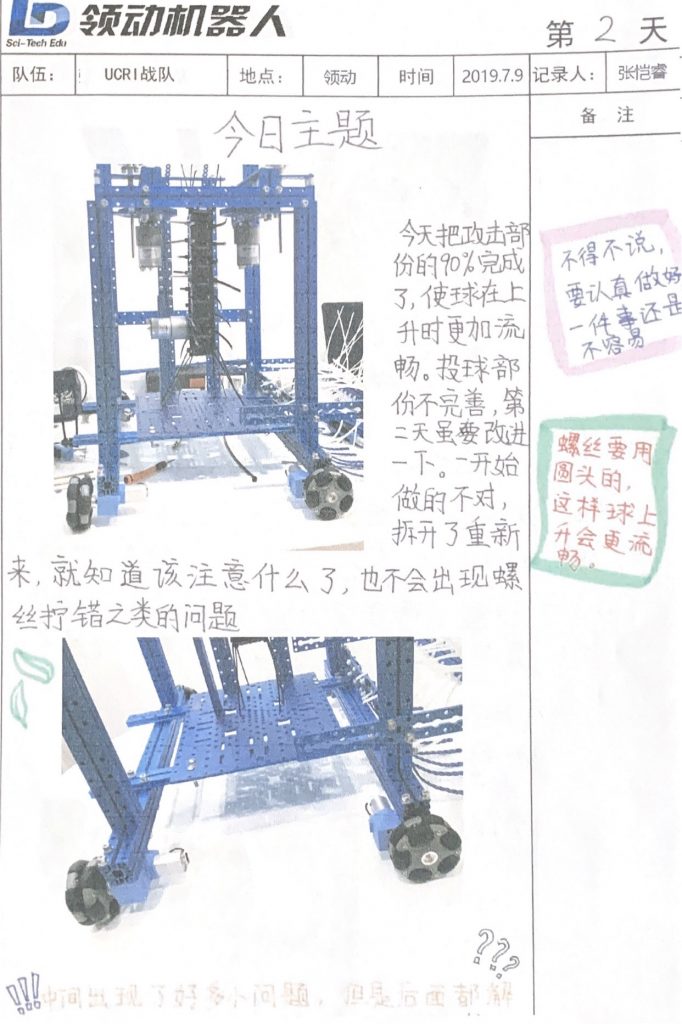 领动机器人
Sci-Tech Edu
第 2 天
队伍： UCRI战队 地点： 领动 时间 2019.7.9 记录人： 张恺睿
备 注
今日主题
今天把攻击部
份的90%完成
了,使球在上
升时更加流
畅。投球部
份不完善,第
二天虽要改进
一下。一开始
做的不对,
拆开了重新
来,就知道该注意什么了,也不会出现螺
丝拧错之类的问题
不得不说,
要认真做好
一件事还是
不容易
螺丝要用
圆头的,
这样球上
升会更流
畅。
???
!!!中间出现了好多小问题,但是后面都解